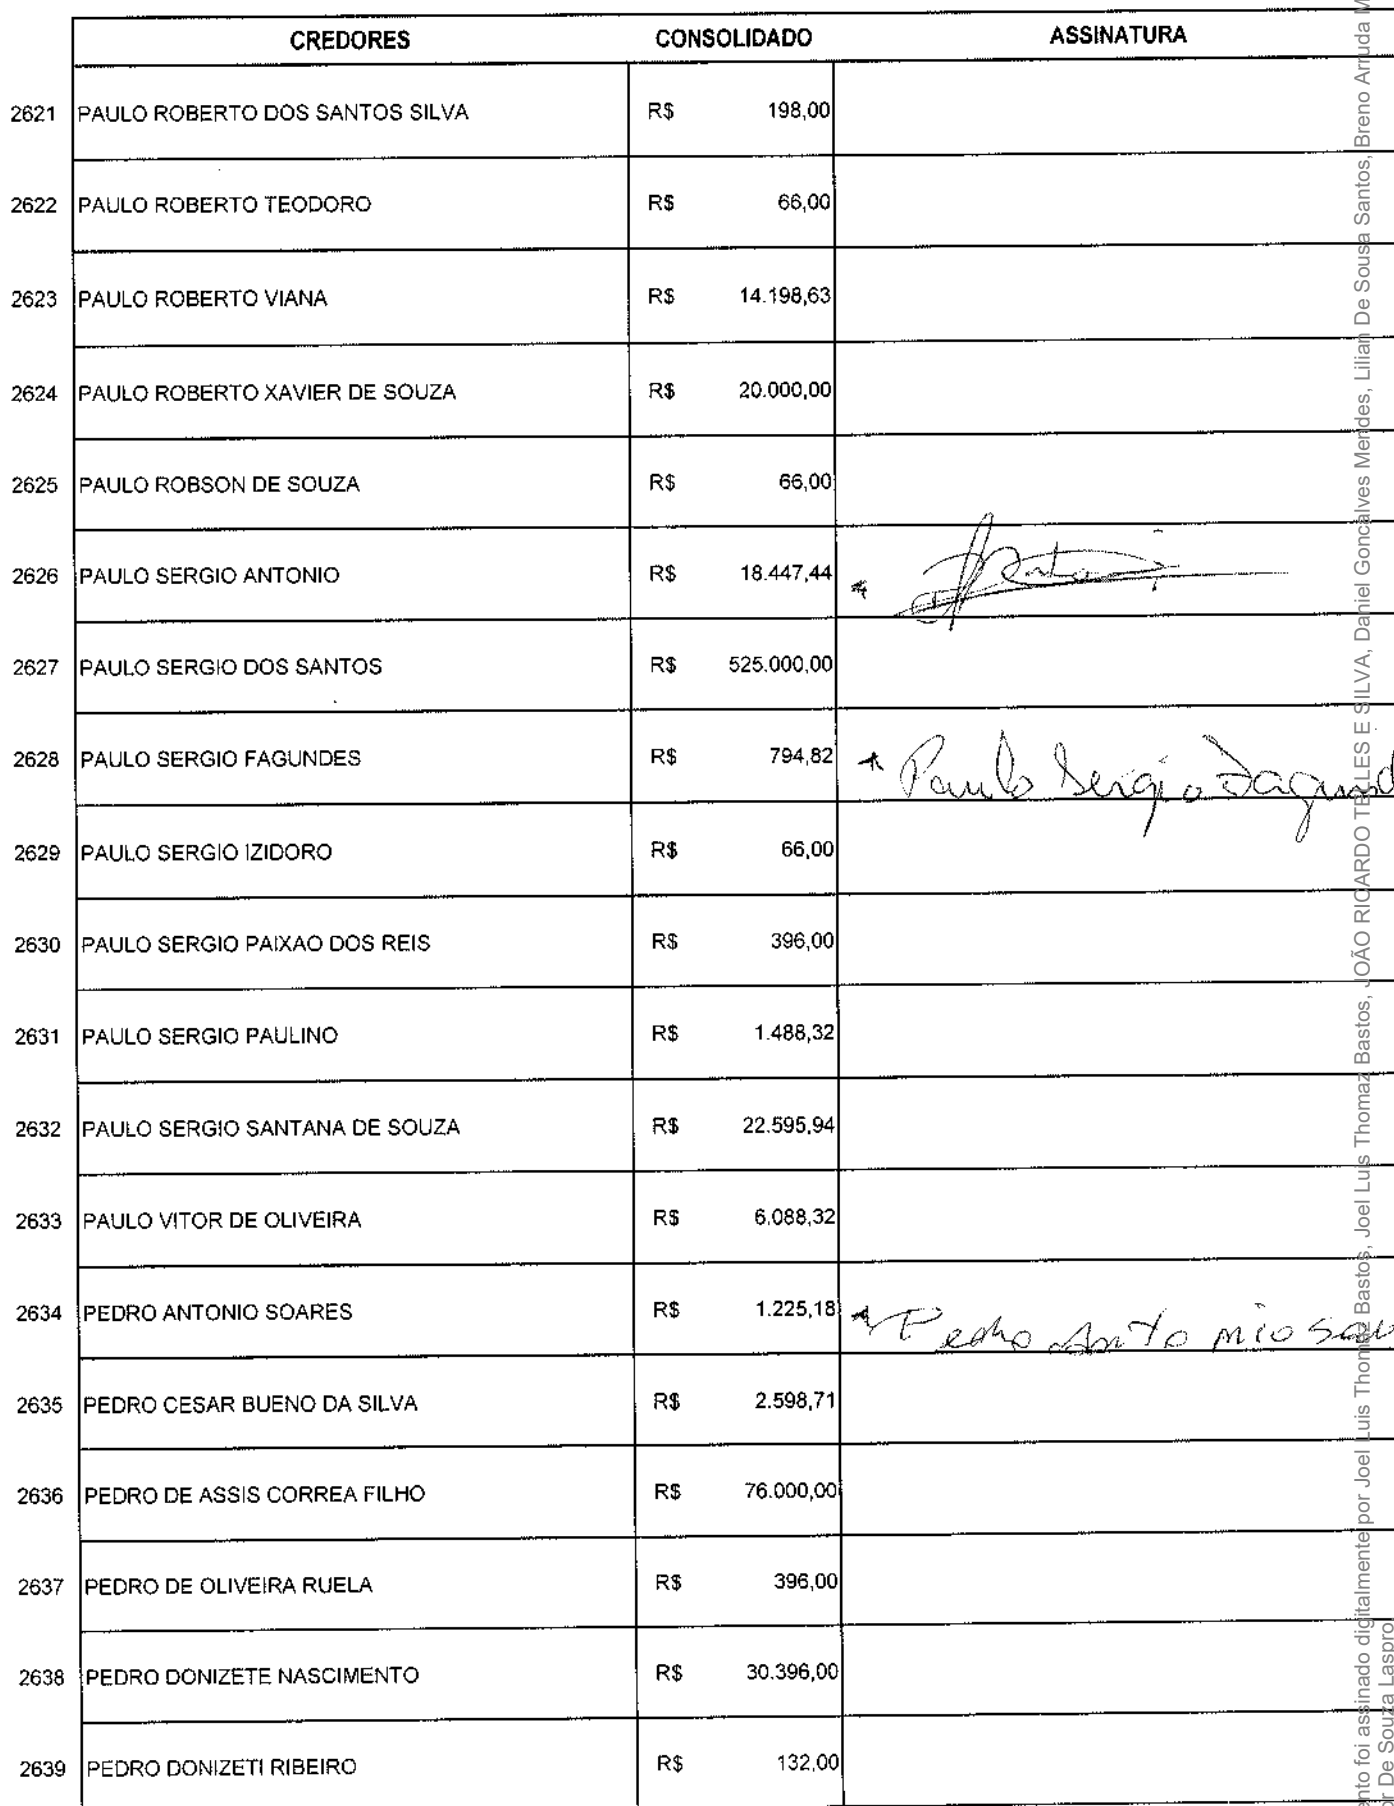 CREDORES CONSOLIDADO ASSINATURA
2621 PAULO ROBERTO DOS SANTOS SILVA R$ 198,00
2622 PAULO ROBERTO TEODORO R$ 66,00
2623 PAULO ROBERTO VIANA R$ 14.198,63
2624 PAULO ROBERTO XAVIER DE SOUZA R$ 20.000,00
2625 PAULO ROBSON DE SOUZA R$ 66,00
2626 PAULO SERGIO ANTONIO R$ 18.447,44
2627 PAULO SERGIO DOS SANTOS R$ 525.000,00
2628 PAULO SERGIO FAGUNDES R$ 794,82 Paulo Sergio Fagund
2629 PAULO SERGIO IZIDORO R$ 66,00
2630 PAULO SERGIO PAIXAO DOS REIS R$ 396,00
2631 PAULO SERGIO PAULINO R$ 1.488,32
2632 PAULO SERGIO SANTANA DE SOUZA R$ 22.595,94
2633 PAULO VITOR DE OLIVEIRA R$ 6.088,32
2634 PEDRO ANTONIO SOARES R$ 1.225,18 Pedro Antonio Soa
2635 PEDRO CESAR BUENO DA SILVA R$ 2.598,71
2636 PEDRO DE ASSIS CORREA FILHO R$ 76.000,00
2637 PEDRO DE OLIVEIRA RUELA R$ 396,00
2638 PEDRO DONIZETE NASCIMENTO R$ 30.396,00
2639 PEDRO DONIZETI RIBEIRO R$ 132,00
nto foi assinado digitalmente por Joel Luis Thomaz Bastos, Joel Luis Thomaz Bastos, JOÃO RICARDO TELLES E SILVA, Daniel Goncalves Mendes, Lilian De Sousa Santos, Breno Arruda M
or De Souza Laspro